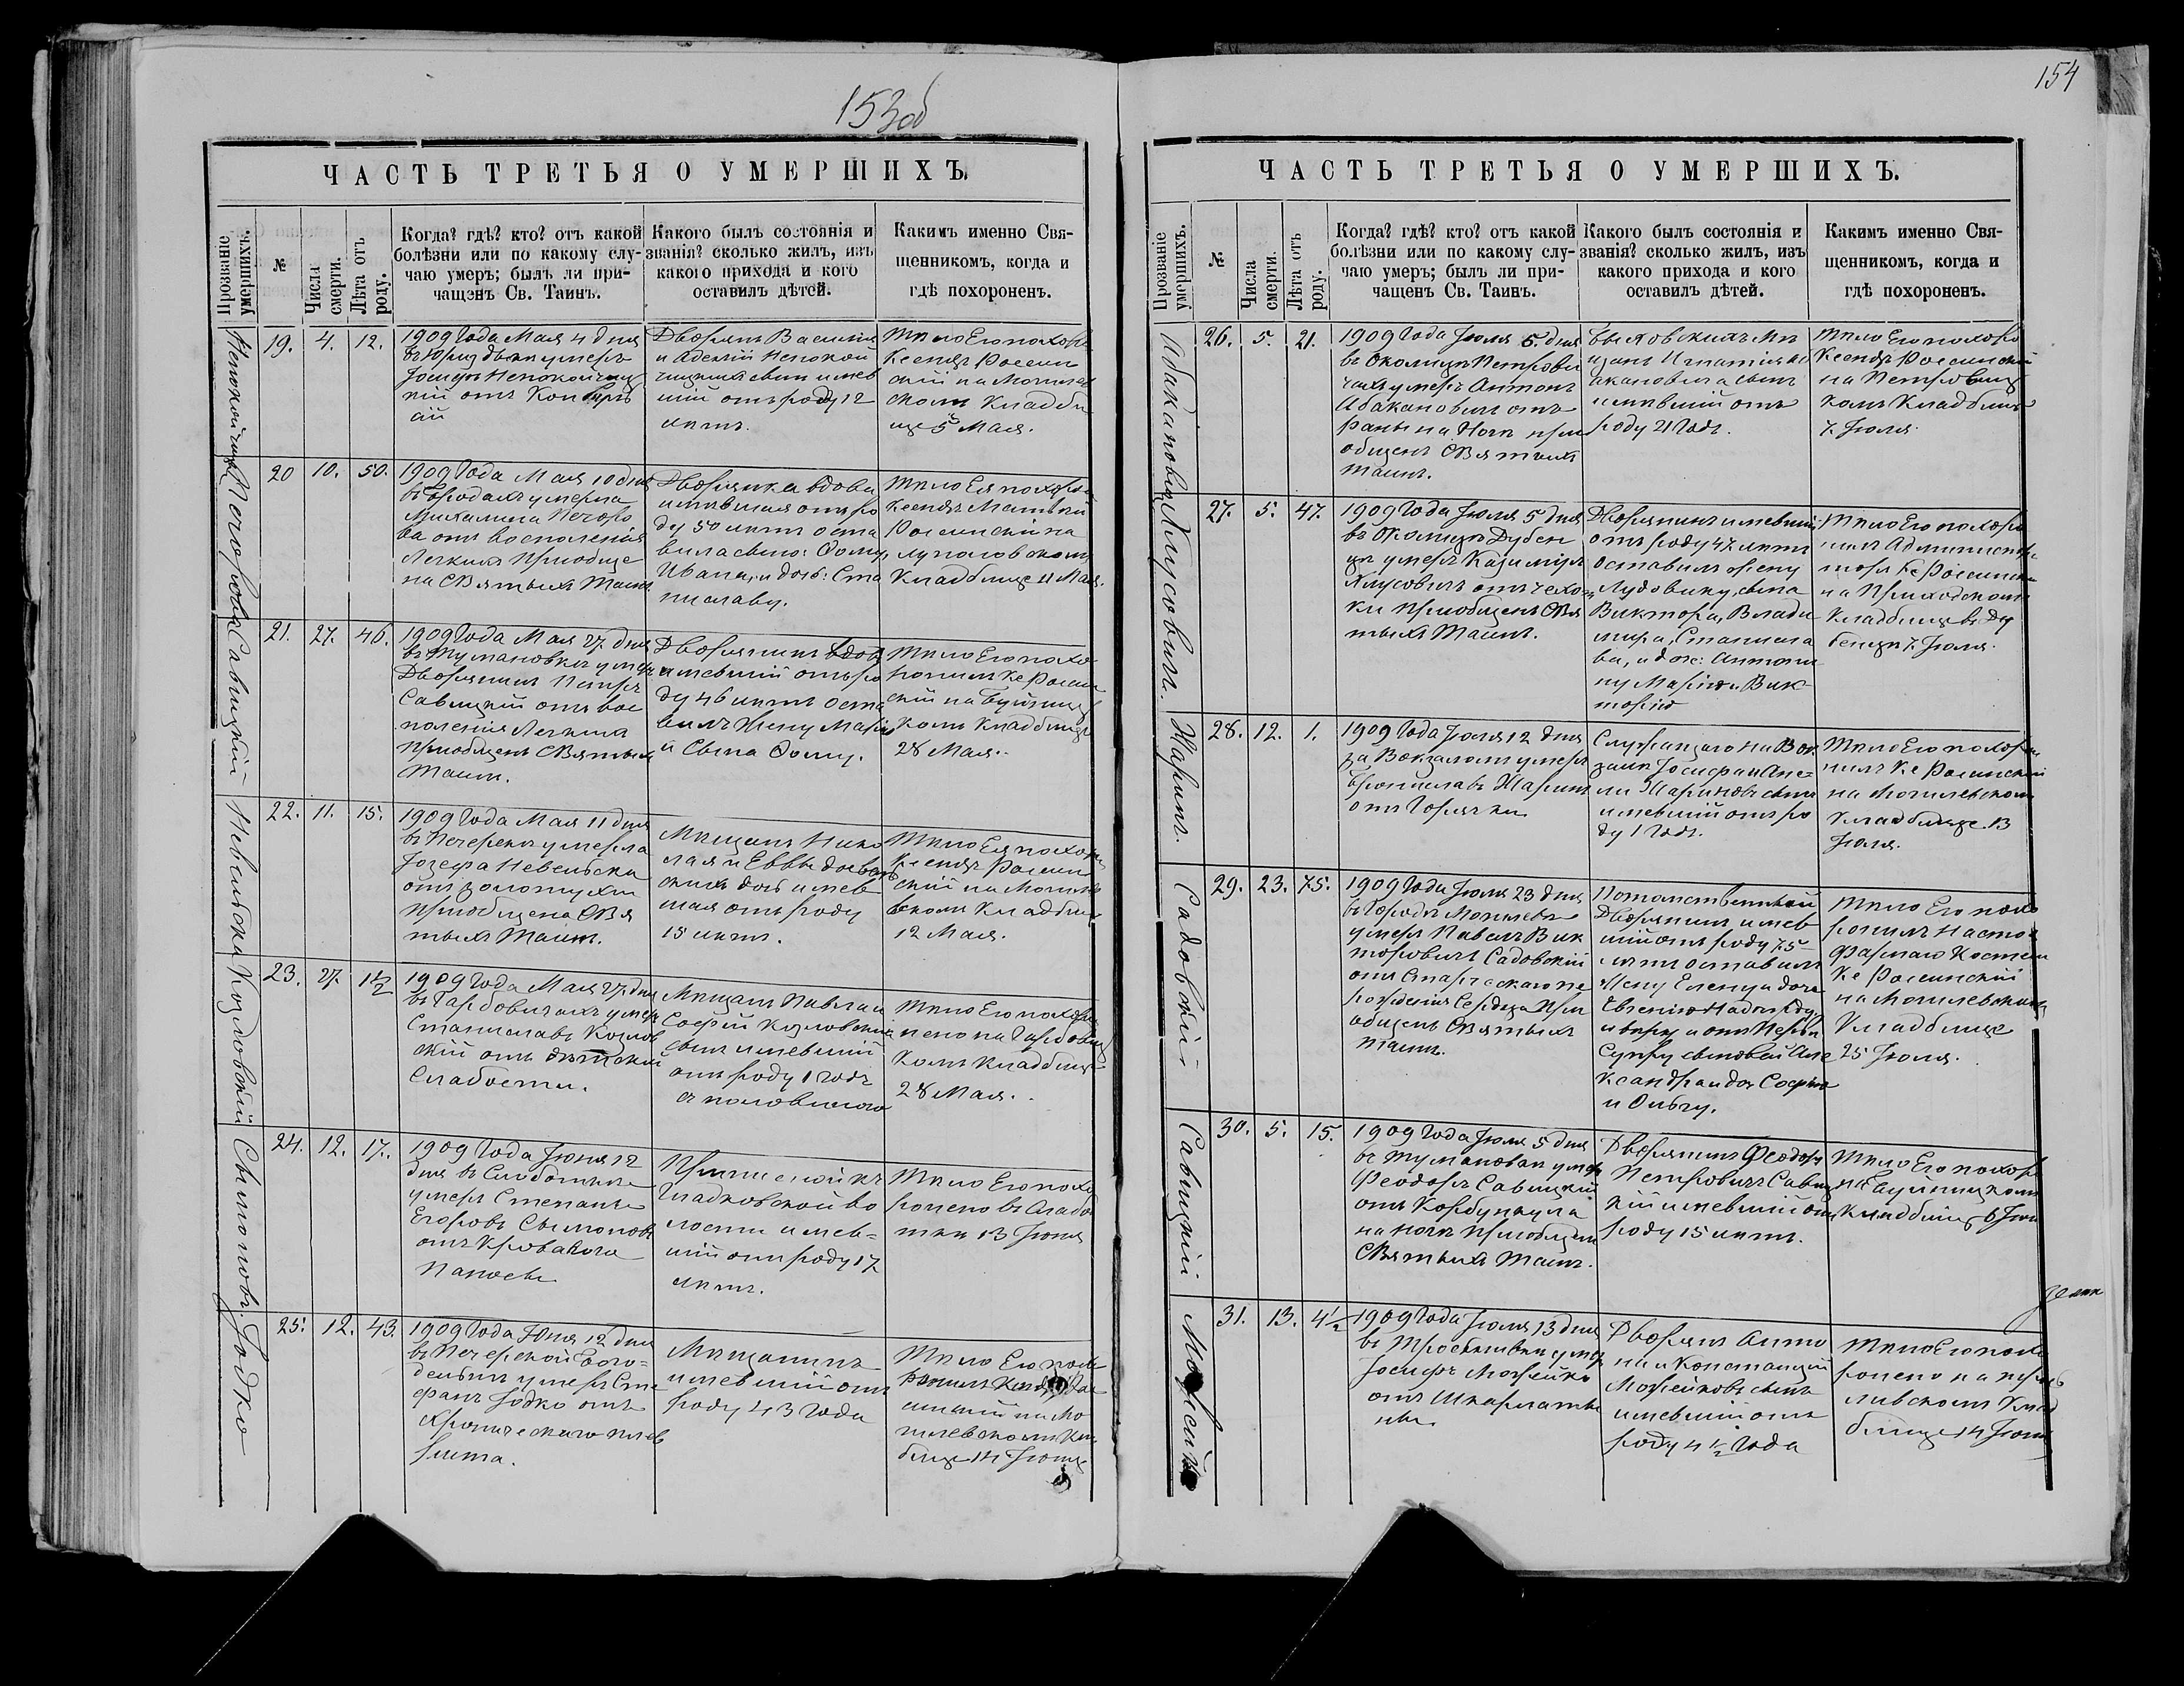 153об
ЧАСТЬ ТРЕТЬЯ О УМЕРШИХЪ
Прозваніе умершихъ.
№
Числа смерти.
Лѣта отъ роду.
Когда? гдѣ? кто? отъ какой
болѣзни или по какому слу-
чаю умеръ; былъ ли при-
чащенъ Св. Таинъ.
Какого былъ состоянія и
званія? сколько жилъ, изъ
какого прихода и кого
оставилъ дѣтей.
Какимъ именно Свя-
щенникомъ, когда и
гдѣ похороненъ.
19. 4. 12.
1909 Года Мая 4 дня
умеръ
Іосифъ Непокойчиц
кій отъ
Дворянъ Василія
и Аделіи Непокой
чицкихъ сынъ имев
шій отъ роду 12
лѣтъ.
Тѣло Его похоро
Ксендзъ Росин
скій на Могилев
скомъ Кладби
ще 5 Мая.
Печорова
20 10. 50.
1909 Года Мая 10 дня
въ Городахъ умерла
Михалина Печоро
ва отъ воспаленія
Легкихъ Приобще
на Святыхъ Таинъ
Дворянка вдова
имѣвшая отъ ро
ду 50 лѣтъ оста
вила сыно: Фому,
Ивана, и доч: Ста
ниславу.
Тѣло Ея похоро
Ксендзъ
Росинскій на
Кладбище 11 Мая.
Савицкій
21. 27. 46.
1909 Года Мая 27 дня
въ Тумановкѣ умеръ
Дворянинъ Петръ
Савицкій отъ вос
поленія Легкихъ
Приобщенъ Святыхъ
Таинъ.
Дворянинъ вдов
имевшій отъ ро
ду 46 лѣтъ оста
вилъ Жену Марію
и Сына Фому.
Тѣло Его похо
ронилъ Кс Росин
скій на Буйниц
комъ Кладбищѣ
28 Мая.
Невельска
22. 11. 15.
1909 Года Мая 11 дня
въ Печерскѣ умерла
Іозефа Невельска
отъ золотухи
Приобщена Свя
тыхъ Таинъ.
Мѣщанъ Нико
лая и Еввы
скихъ дочь имев
шая отъ роду
15 лѣтъ.
Тѣло Ея похоро
Ксендзъ Росин
скій на Могиле
вскомъ Кладбищ
12 Мая.
Козловскій
23. 27. 1½
1909 Года Мая 27 дня
въ Гарбовичахъ умеръ
Станиславъ Козлов
скій отъ дѣтской
Слабости.
Мѣщанъ Павла и
Софіи Козловскихъ
сынъ имевшій
отъ роду 1 годъ
съ половиною
Тѣло Его похоро
нено на Гарбовиц
комъ Кладбищѣ
28 Мая.
Сымоновъ.
24. 12. 17.
1909 Года Іюня 12
дня въ Слободкѣ
умеръ Степанъ
Егоровъ Сымоновъ
отъ Кроваваго
Поноса
къ
во
лости имев-
шій отъ роду 17
лѣтъ.
Тѣло Его похо
ронено въ Слобо
ткѣ 13 Іюня
Іодко
25. 12. 43.
1909 Года Іюня 12 дня
въ Печерской Бого-
дельнѣ умеръ Сте
фанъ Іодко отъ
Хроническаго плев
рита.
Мѣщанинъ
имевшій отъ
роду 43 Года
Тѣло Его похо
ронилъ Ксендзъ Ро
синскій на Мо
гилевскомъ Кла
бище 14 Іюня
154
ЧАСТЬ ТРЕТЬЯ О УМЕРШИХЪ.
Прозваніе умершихъ.
№
Числа смерти.
Лѣта отъ роду.
Когда? гдѣ? кто? отъ какой
болѣзни или по какому слу-
чаю умеръ; былъ ли при-
чащенъ Св. Таинъ.
Какого былъ состоянія и
званія? сколько жилъ, изъ
какого прихода и кого
оставилъ дѣтей.
Какимъ именно Свя-
щенникомъ, когда и
гдѣ похороненъ.
Абакановичъ
26. 5. 21.
1909 Года Іюля 5 дня
въ Околицѣ Петрови
чахъ умеръ Антонъ
Абакановичъ отъ
раны на Ногѣ при
общенъ Святыхъ
Таинъ.
Быховскихъ Мѣ
щанъ Игнатія Аб
акановича сынъ
имѣвшій отъ
роду 21 Годъ.
Тѣло Его похоро
Ксендзъ Росинскій
на Петровиц
комъ Кладбищѣ
7. Іюля.
Хлусовичъ.
27. 5. 47.
1909 Года Іюля 5 дня
въ Околицѣ Дубен
цѣ умеръ Казимиръ
Хлусовичъ отъ чехот
ки Приобщенъ Свя
тыхъ Таинъ.
Дворянинъ имевшій
отъ роду 47 лѣтъ
оставилъ жену
Лудовику, сына
Виктора, Влади
мира, Станисла
ва, и доч: Антони
ну Марію и Вик-
торію
Тѣло Его похоро
нилъ Администра
торъ Кс Росински
на Приходскомъ
Кладбище в Ду
бенцѣ 7. Іюля.
Шаринъ.
28. 12. 1.
1909 Года Іюля 12 дня
за Вокзаломъ умеръ
Брониславъ Шаринъ
отъ Горячки
Служащаго на Вок
залѣ Іосифа и Ане-
ли Шариновъ сынъ
имевшій отъ ро
ду 1 Годъ.
Тѣло Его похоро
нилъ Кс Росинскій
на Могилевскомъ
Кладбище 13
Іюля.
Садовскій
29. 23. 75.
1909 Года Іюля 23 дня
въ Городѣ Могилевѣ
умеръ Павелъ Вик
торовичъ Садовскій
отъ Старческаго пе
рожденія Сердца При
общенъ Святыхъ
Таинъ.
Потомственный
Дворянинъ имев
шій отъ роду 75
лѣтъ оставилъ
Жену Елену и доче
Евгенію Надежду,
и вѣру и отъ Перв
Супру сыновей Але
ксандра и доч Софію
и Ольгу.
Тѣло Его похо
ронилъ Насто
Фарнаго Костел
Кс Росинскій
на Могилевскомъ
Кладбище
25 Іюля.
Савицкій
30. 5. 15.
1909 Года Іюля 5 дня
въ Тумановкѣ умер
Феодоръ Савицкій
отъ Карбункула
на ногѣ Приобщенъ
Святыхъ Таинъ.
Дворянинъ Феодоръ
Петровичъ Савиц
кій имевшій отъ
роду 15 лѣтъ.
Тѣло Его похор
на Буйницкомъ
Кладбищѣ 6 Іюл
Можейко
31. 13. 4½
1909 Года Іюля 13 дня
умер
Іосифъ Можейко
отъ Шкарлати
ны
Дворянъ Анто
на и Констанціи
Можейковъ сынъ
имевшій отъ
роду 4 ½ Года
Тѣло Его похо
ронено на
Клад
бище 14 Іюля